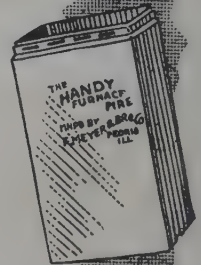 THE
HANDY
FURNACE
PIPE
MADE BY
F. MEYER & BRO. CO
PEORIA
ILL